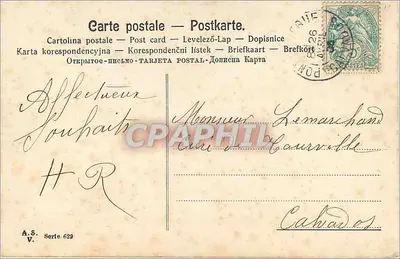 Carte postale – Postkarte.
Cartolina postale – Post card – Levelező-Lap – Dopisnice
Karta korespondencyjna – Korespondenční lístek – Briefkaart – Brefkort
Открытое-письмо-TARJETA POSTAL-Дописна Карта
Affectueux
Souhaits
H R
Monsieur Lemarchand
Curé de Tourville
Calvados
CPAPHIL
A.S.
V. Serie 629